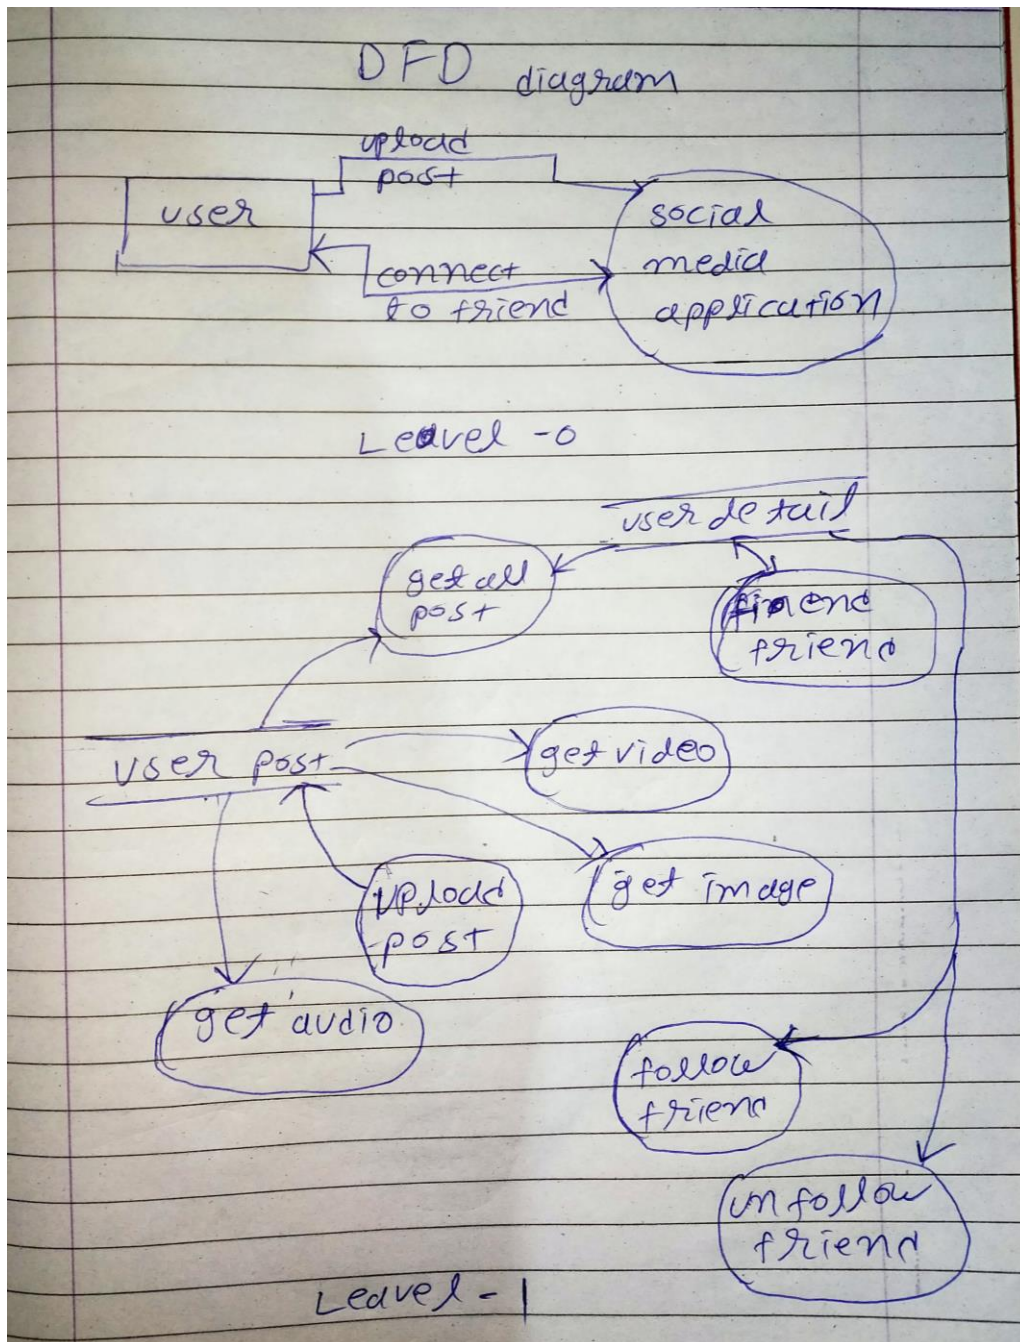 DFD diagram
upload
post
user
social
media
application
connect
to friend
Leavel - 0
user detail
get all
post
friend
user post
get video
upload
post
get image
get audio
follow
friend
unfollow
friend
Leavel - 1